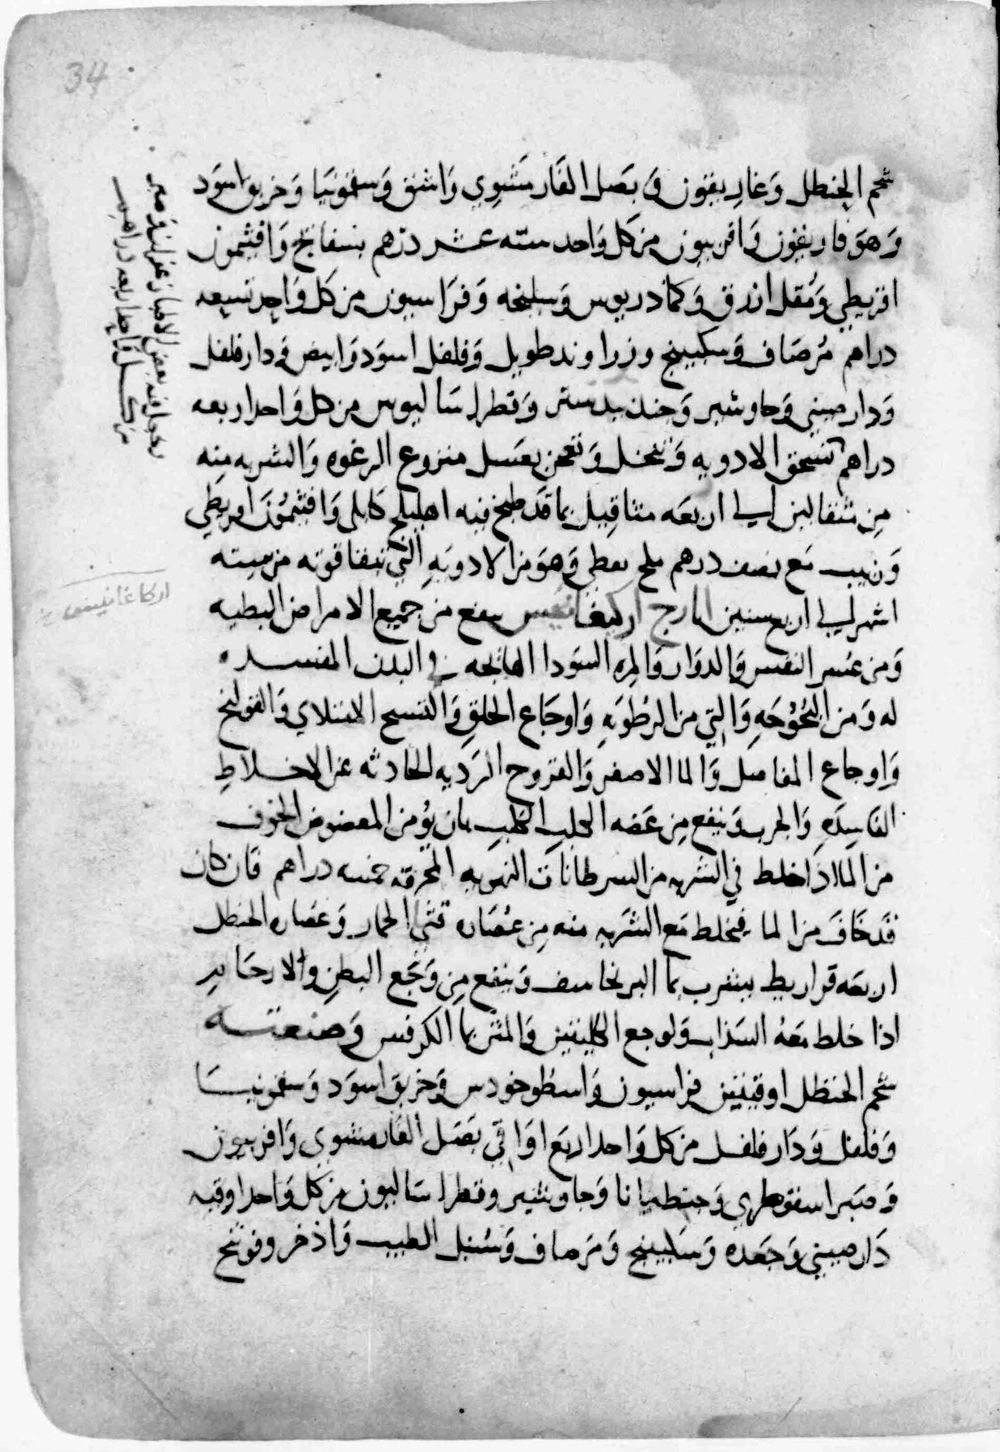 34
شحم الحنظل وَغاريقون وَ بصَل الفَار مَشوي وَاشق وَسقمونيا وَخربق اسوَد
وَهوَفاريقون وَافربيون من كل وَاحد سته عشر درهم بسفايج وَافثيمون
اقريطي وَمُقل ازرق وَكمادريوس وَسليخه وَفرَاسيون من كل وَاحد تسعه
دراهم مُر صَاف وَسكبينج وزراوند طويل وَفلفل اسوَد وَابيض وَدار فلفل
وَدار صيني وَجاوشير وَجند بيدستر وَفطراسَاليوس من كل وَاحد اربعه
دراهم تسحق الادويه وَتنخل وَتعجن بعسَل منزوع الرغوه وَالشربه منه
مِن مثقالين الي اربعَه مثاقِيل بما قَد طبخ فيه اهليلج كابلي وَافثيمُون اقريطي
وَزبيب مَع نصف درهم ملح نفطي وَهوَ من الادويَهِ التي تبقا قوته من سته
اشهر الي اربع سنين ايارج اركيغانيس ينفع من جميع الامراض البطيه
وَمن عُسر النفس وَالدوَار وَالمره السَودا الهايجه في البدن المفسده
له وَمن البُحُوْحَهِ وَالتي من الرطُوبَهِ وَاوجَاع الحلقِ وَالتشنج الامتلاي وَالقولنج
وَاوجاع المفاصل وَالما الاصفر وَالقروح الرَديه الحادثه عن الاخلاطِ
الفاسِدَهِ وَالجرب وَينفع مِن عَضه الكلبِ الكَلِبِ بان يؤمن المعضوض الخوف
من الما اذا خلط في الشربه من السرطانات النهريه المحرقه خمسه دراهم فان كان
قَد خَافَ من الما فيخلط مَع الشرَبهِ منه مِن عُصَاره قثي الحمار وَعصاره الحنظل
اربعَه قراريط بيشرب بما البرنجاسف وَينفع مِن وَجَع البطنِ وَالارحَام
اذا خلط مَعهُ السَذاب وَلوجع الكليتين وَالمتن بما الكرفس وَصنعته
شحم الحنظل اوقيتين فراسيون وَاسطوخودس وَخربق اسوَد وَسقمونيَا
وَفلفل وَدَار فلفل من كل وَاحد اربَع اوَاقي بصَل الفار مشوي وَافربيون
وَصَبر اسقوطري وَجنطيانا وَجاوشير وفطراسَاليون من كل وَاحد اوقيه
دَار صيني وَجَعده وَسكبينج وَمُر صاف وَسُنبل الطيب وَاذخر وفوتنج
اركاغانيس